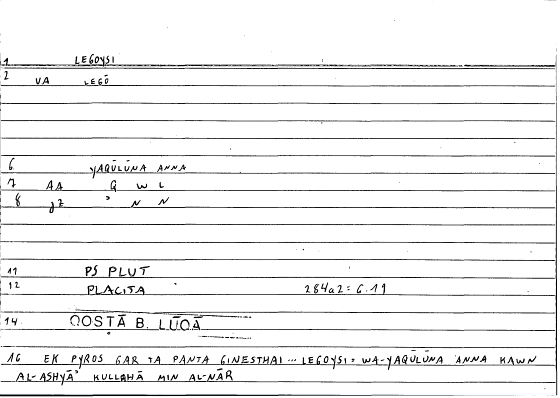 1 LEGOYSI
2 VA LEGŌ
6 YAQŪLŪNA ANNA
7 AA Q W L
8 JZ ʾ N N
11 PS PLUT
12 PLACITA 284a2 = 6.19
14 QOSṬĀ B. LŪQĀ
16 EK PYROS GAR TA PANTA GINESTHAI ... LEGOYSI = WA-YAQŪLŪNA ʾANNA KAWN
AL-ASHYĀʾ KULLAHĀ MIN AL-NĀR